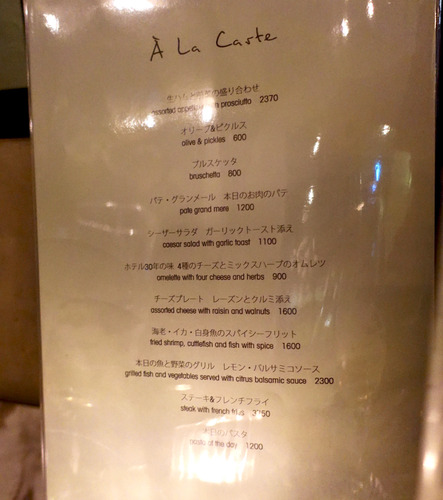 À La Carte
生ハムと の盛り合わせ
assorted appetizer with prosciutto 2370
オリーブ&ピクルス
olive & pickles 600
ブルスケッタ
bruschetta 800
パテ・グランメール 本日のお肉のパテ
pate grand mere 1200
シーザーサラダ ガーリックトースト添え
caesar salad with garlic toast 1100
ホテル30年の味 4種のチーズとミックスハーブのオムレツ
omelette with four cheese and herbs 900
チーズプレート レーズンとクルミ添え
assorted cheese with raisin and walnuts 1600
海老・イカ・白身魚のスパイシーフリット
fried shrimp, cuttlefish and fish with spice 1600
本日の魚と野菜のグリル レモン・バルサミコソース
grilled fish and vegetables served with citrus balsamic sauce 2300
ステーキ&フレンチフライ
steak with french fries
本日のパスタ
pasta of the day 1200